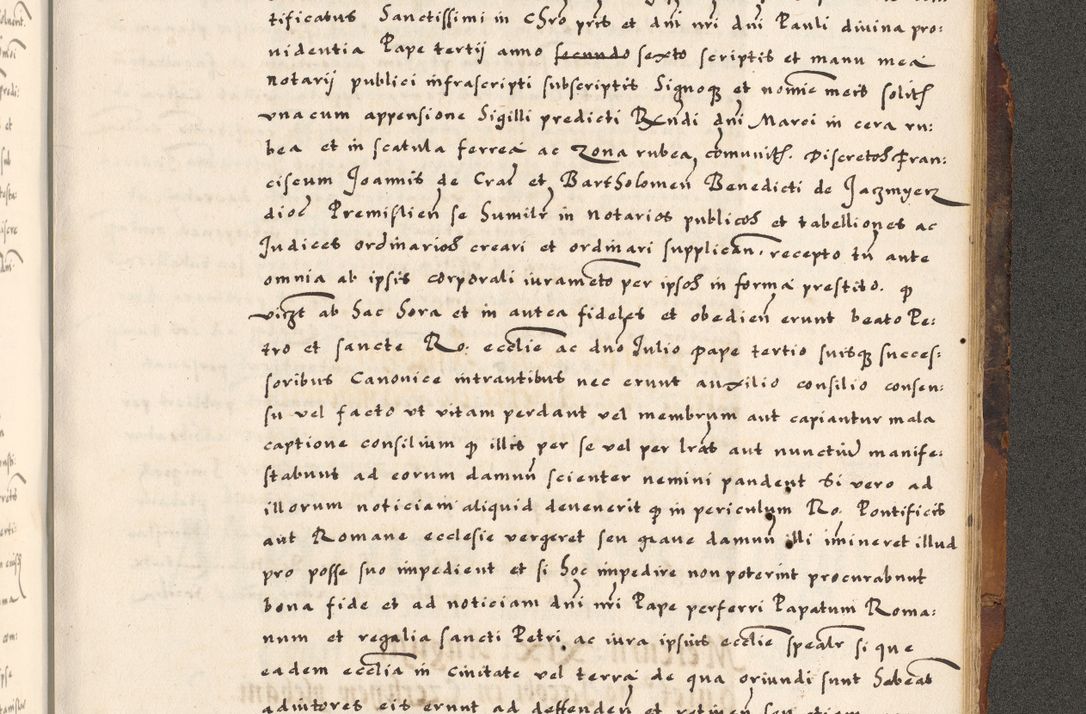 tificatus Sanctissimi in Chro pris et dni nri dni Pauli diuina pro:
uidentia Pape tertij anno secundo sexto scriptis et manu mea
notarij publici infrascripti subscriptis Signoqꝫ et nomie meis solitʃ
vnacum appensione Sigilli predicti Rxndi dni Marci in cera ru:
bea et in scatula ferrea ac zona rubea comunitʃ. Discretos Fran:
ciscum Joannis de Crac et Bartholomeu Benedicti de Jaczmyerz
dioc Premislien se humilr in notarios publicos et tabelliones ac
Judices ordinarios creari et ordinari supplican, recepto tn ante
omnia ab ipsis corporali iurameto per ipsos in forma prestito. ꝙ
vizt ab hac hora et in antea fideles et obedien erunt beato Pe:
tro et sancte Ro. ecclie ac dno Julio pape tertio suisqꝫ succes:
soribus Canonice intrantibus nec erunt auxilio consilio consen:
su vel facto ut vitam perdant vel membrum aut capiantur mala
captione consilium ꝙ illis per se vel per lras aut nunctiu manife:
stabunt ad eorum damnu scienter nemini pandent Si vero ad
illorum noticiam aliquid deuenerit ꝙ in periculum Ro. Pontificis
aut Romane ecclesie vergeret seu graue damnu illi imineret illud
pro posse suo impedient et si hoc impedire non poterint procurabunt
bona fide et ad noticiam dni nri Pape perferri Papatum Roma:
num et regalia sancti Petri ac iura ipsius ecclie spealr si que
eadem ecclia in Ciuitate vel terra de qua oriundi sunt habeat
adiutores eis erunt ad deffenden et retinen seu etiam